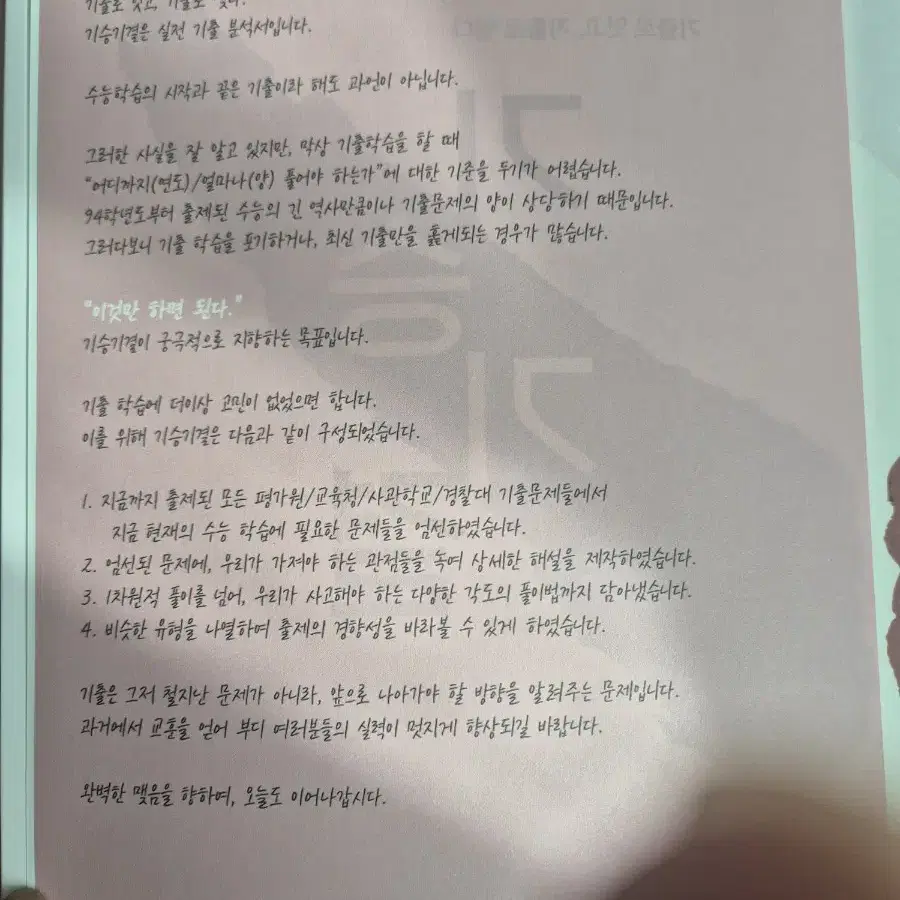 기출로 잇고, 기출로
기승기결은 실전 기출 분석서입니다.
수능학습의 시작과 끝은 기출이라 해도 과언이 아닙니다.
그러한 사실을 잘 알고 있지만, 막상 기출학습을 할 때
“어디까지(연도)/얼마나(양) 풀어야 하는가”에 대한 기준을 두기가 어렵습니다.
94학년도부터 출제된 수능의 긴 역사만큼이나 기출문제의 양이 상당하기 때문입니다.
그러다보니 기출 학습을 포기하거나, 최신 기출만을 훑게되는 경우가 많습니다.
“이것만 하면 된다.”
기승기결이 궁극적으로 지향하는 목표입니다.
기출 학습에 더이상 고민이 없었으면 합니다.
이를 위해 기승기결은 다음과 같이 구성되었습니다.
1. 지금까지 출제된 모든 평가원/교육청/사관학교/경찰대 기출문제들에서
지금 현재의 수능 학습에 필요한 문제들을 엄선하였습니다.
2. 엄선된 문제에, 우리가 가져야 하는 관점들을 녹여 상세한 해설을 제작하였습니다.
3. 1차원적 풀이를 넘어, 우리가 사고해야 하는 다양한 각도의 풀이법까지 담아냈습니다.
4. 비슷한 유형을 나열하여 출제의 경향성을 바라볼 수 있게 하였습니다.
기출은 그저 철지난 문제가 아니라, 앞으로 나아가야 할 방향을 알려주는 문제입니다.
과거에서 교훈을 얻어 부디 여러분들의 실력이 멋지게 향상되길 바랍니다.
완벽한 맺음을 향하여, 오늘도 이어나갑시다.